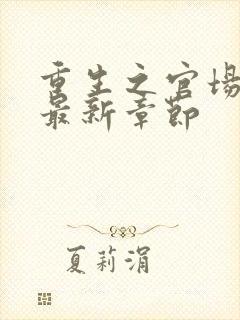 重生之官场
最新章节
夏莉涓